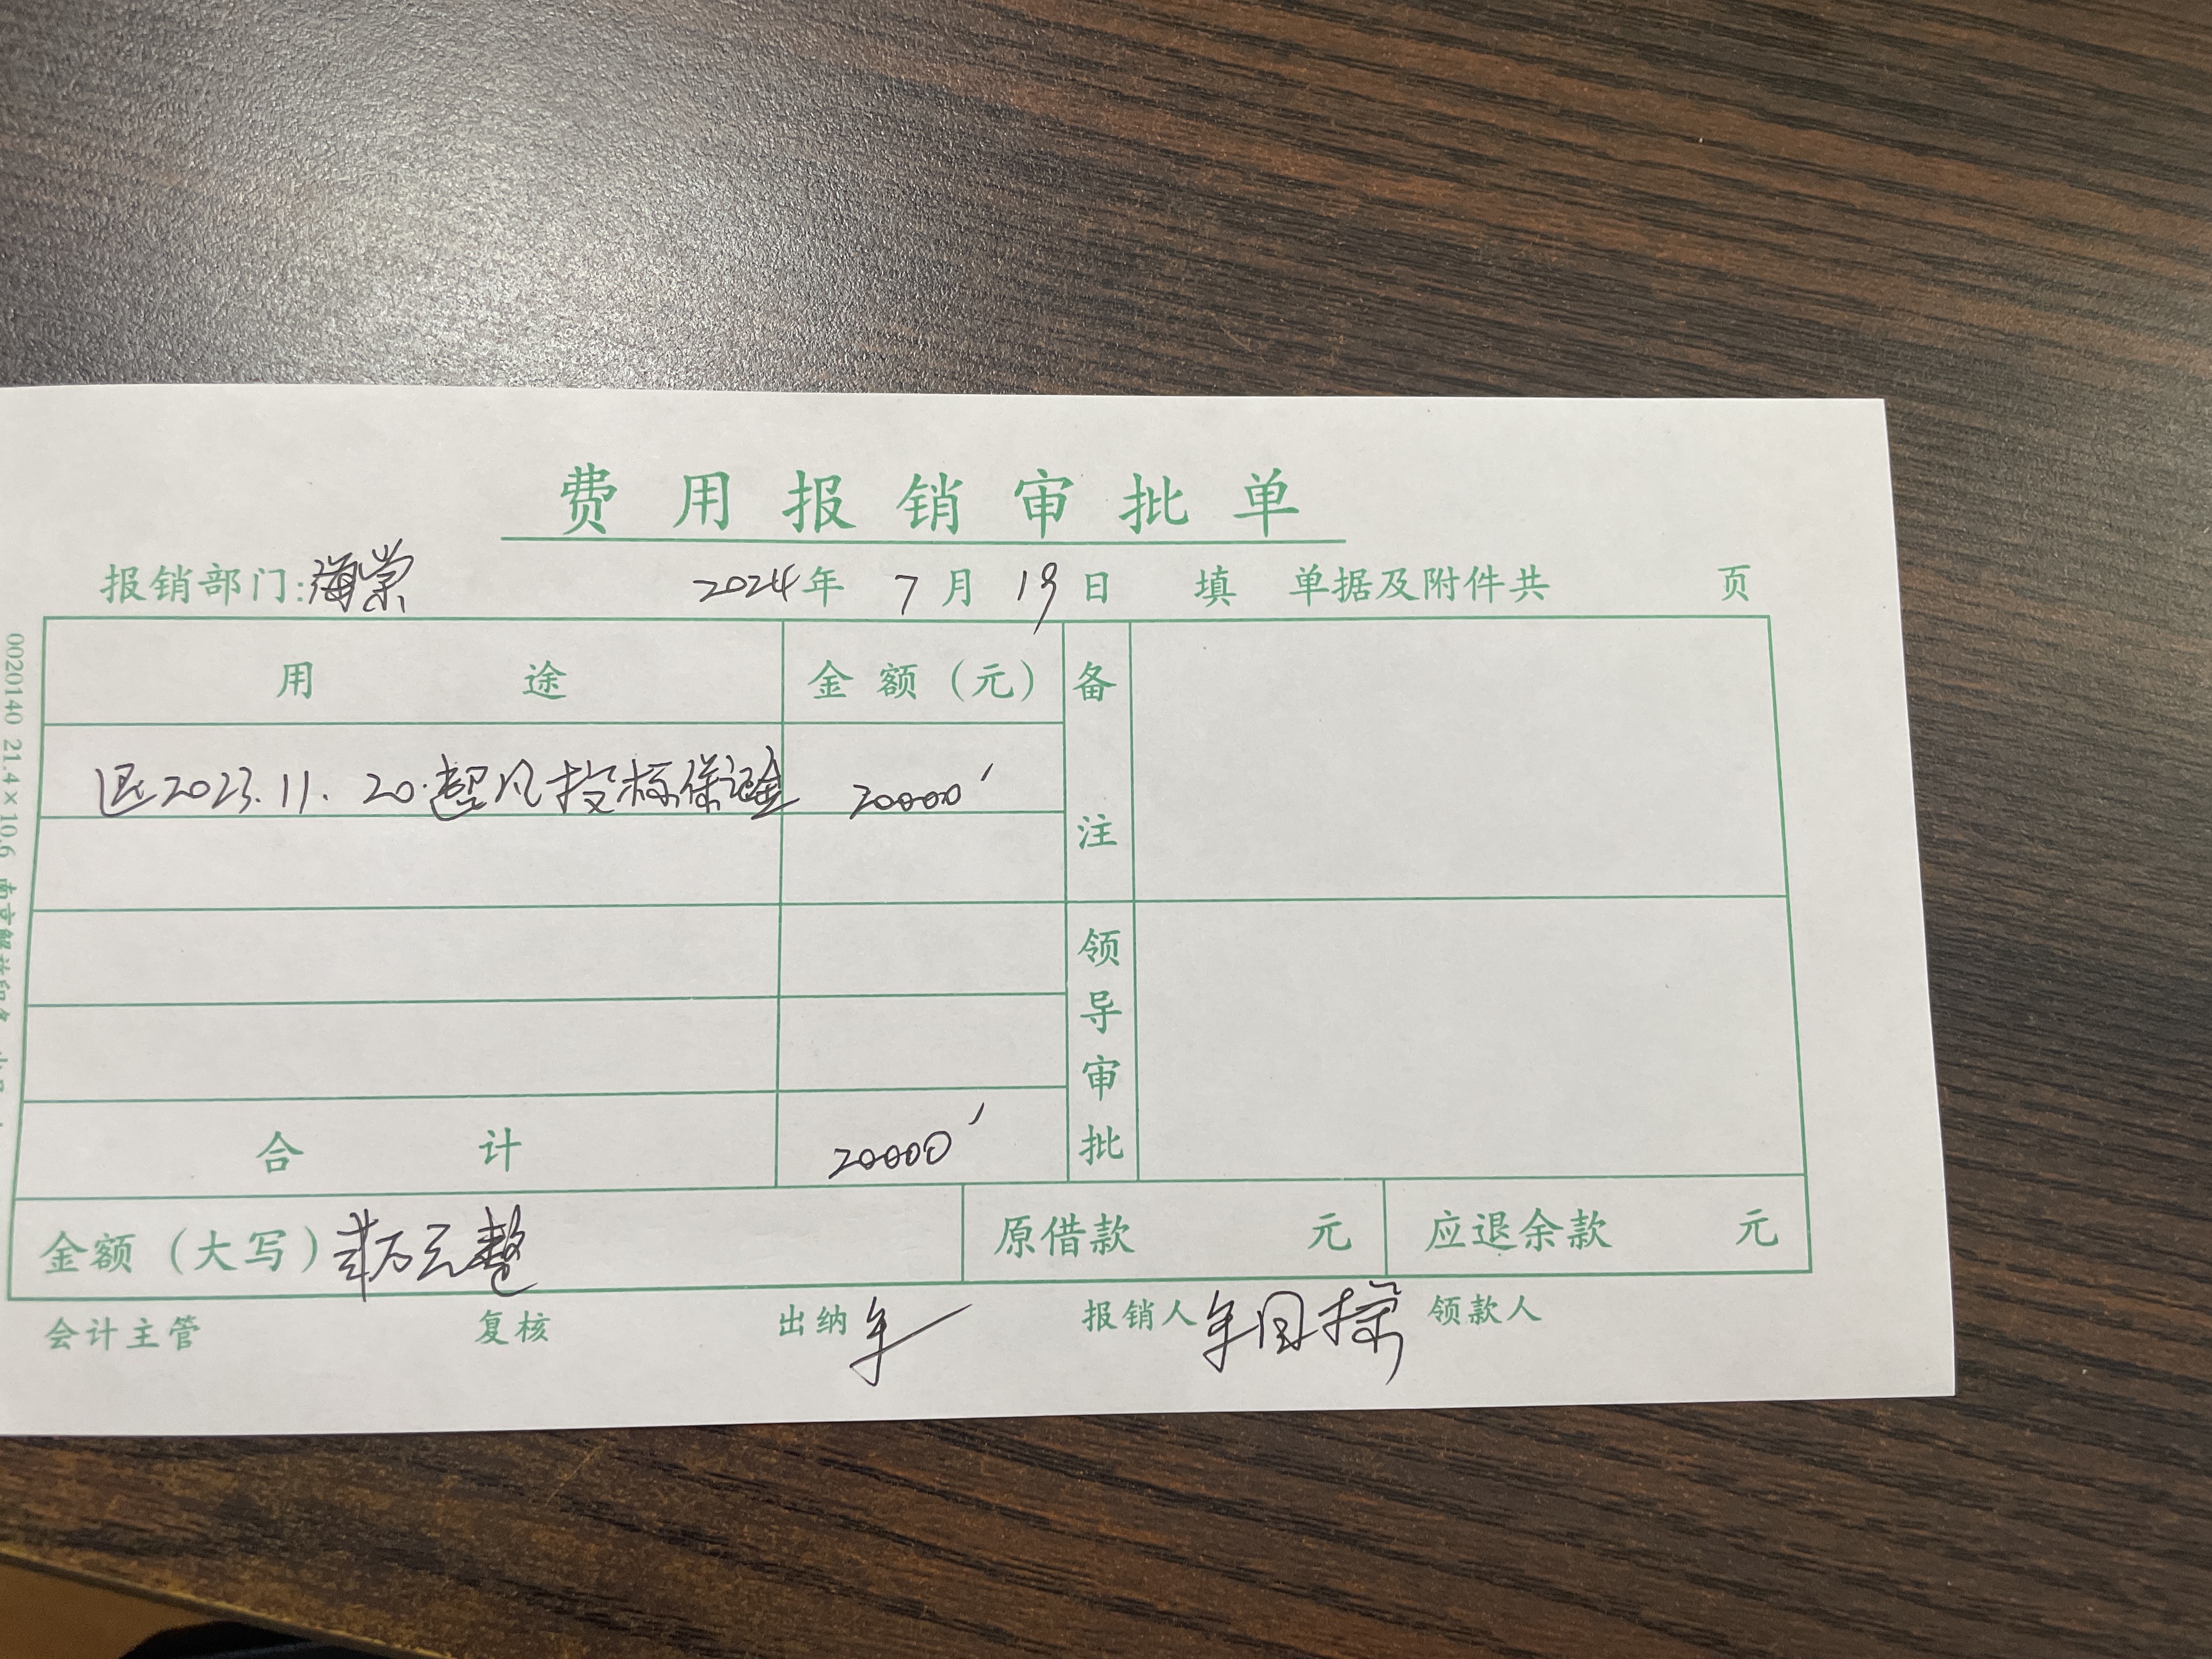 费用报销审批单
报销部门:海棠 2024年 7月 19日 填 单据及附件共 页
用途 金额(元) 备注
退2023.11.20.超凡投标保证金 20000
领导审批
合计 20000
金额(大写)贰万元整 原借款 元 应退余款 元
会计主管 复核 出纳 报销人 领款人
0020140 21.4×10.6 南京